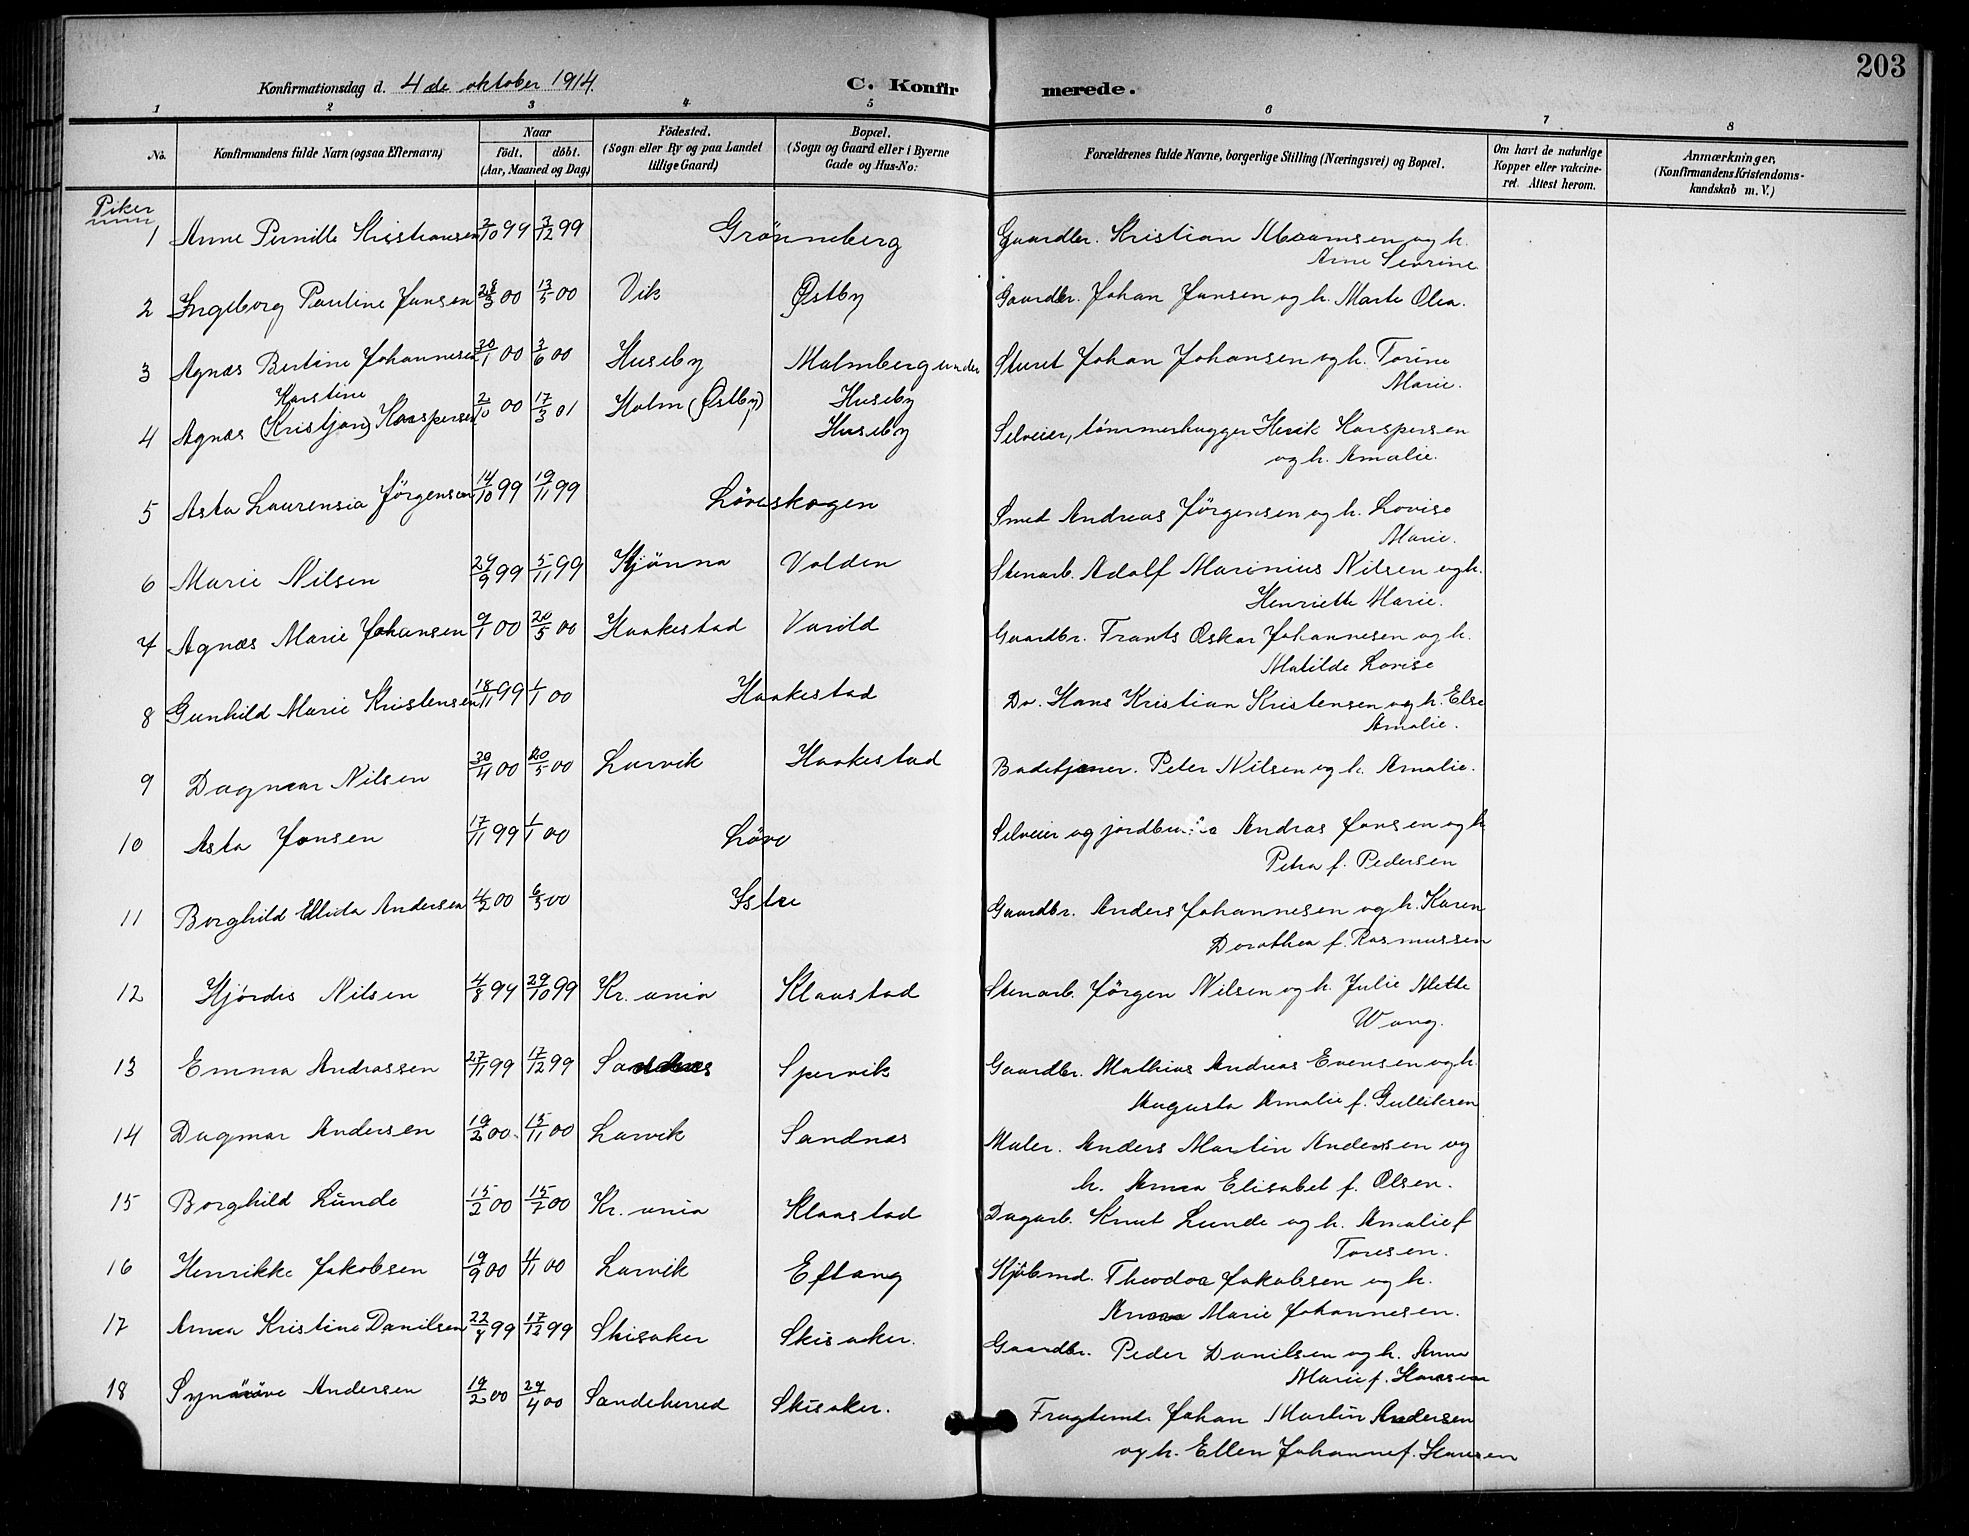 203
Konfirmationsdag d. 4de oktober 1914.
C. Konfirmerede.
1 2 3 4 5 6 7 8
No. Konfirmandens fulde Navn (ogsaa Efternavn) Naar født. døbt. (Aar, Maaned og Dag) Fødested. (Sogn eller By og paa Landet tillige Gaard) Bopæl. (Sogn og Gaard eller i Byerne Gade og Hus-No: Forældrenes fulde Navne, borgerlige Stilling (Næringsvei) og Bopæl. Om havt de naturlige Kopper eller vakcineret. Attest herom. Anmærkninger, (Konfirmandens Kristendomskundskab m. V.)
Piker
1 Anne Pernille Kristiansen 2/10 99 3/12 99 Grönneberg Gaardbr. Kristian og h.
Anne Sevrine
2 Ingeborg Pauline Jansen 28/3 00 13/5 00 Vik Østby Gaardbr. Johan Jansen og h. Marte Olea.
3 Agnæs Bertine Johannesen 30/1 00 3/6 00 Huseby Malmberg under Johan Johansen og h. Torine
Huseby Marie.
Karstine
4 Agnæs (Kristjan) Kaspersen 2/10 00 17/3 01 Holm (Østby) Huseby Selveier, tömmerhugger Kaspersen
og h. Amalie.
5 Asta Laurensia Jørgensen 14/10 99 19/11 99 Löveskogen Smed Andreas Jørgensen og h. Lovise
Marie.
6 Marie Nilsen 29/9 99 5/11 99 Hjönna Volden Stenarb. Adolf Marinius Nilsen og h.
Henriette Marie.
7 Agnæs Marie Johansen 9/1 00 20/5 00 Haakestad Varild Gaardbr. Frants Oskar Johannesen og h.
Matilde Lovise
8 Gunhild Marie Kristensen 18/11 99 1/1 00 Haakestad Do. Hans Kristian Kristensen og h. Else
Amalie.
9 Dagmar Nilsen 30/4 00 20/5 00 Larvik Haakestad Badetjener. Peter Nilsen og h. Amalie.
10 Asta Jansen 17/11 99 1/1 00 Löve Selveier og Andras Jansen og h
Petra f. Pedersen
11 Borghild Ellida Andersen 4/2 00 6/3 00 Istre Gaardbr. Anders Johannesen og h. Karen
Dorothea f. Rasmussen
12 Hjördis Nilsen 4/8 99 29/10 99 Kr. ania Klaastad Stenarb. Jörgen Nilsen og h. Julie Mette
Wang.
13 Emma Andrassen 27/11 99 17/12 99 Spervik Gaardbr. Mathias Andreas Evensen og h.
Augusta Amalie f. Gulliksen
14 Dagmar Andersen 19/2 00. 15/11 00 Larvik Sandnæs Maler. Anders Martin Andersen og
h. Anna Elisabet f. Olsen.
15 Borghild Lunde 15/2 00 15/7 00 Kr. ania Klaastad Dagarb. Knut Lunde og h. Amalie f
Toresen.
16 Henrikke Jakobsen 19/9 00 4/11 00 Larvik Eftang Kjöbmd. Theodor Jakobsen og h.
Anna Marie Johannesen.
17 Anna Kristine Danilsen 22/7 99 17/12 99 Skisaker Skisaker. Gaardbr. Peder Danilsen og h. Anna
Marie f. Hansen
18 Andersen 19/2 00 29/4 00 Sandeherred Skisaker. Fragtemd. Johan Martin Andersen
og h. Ellen Johanne f. Hansen